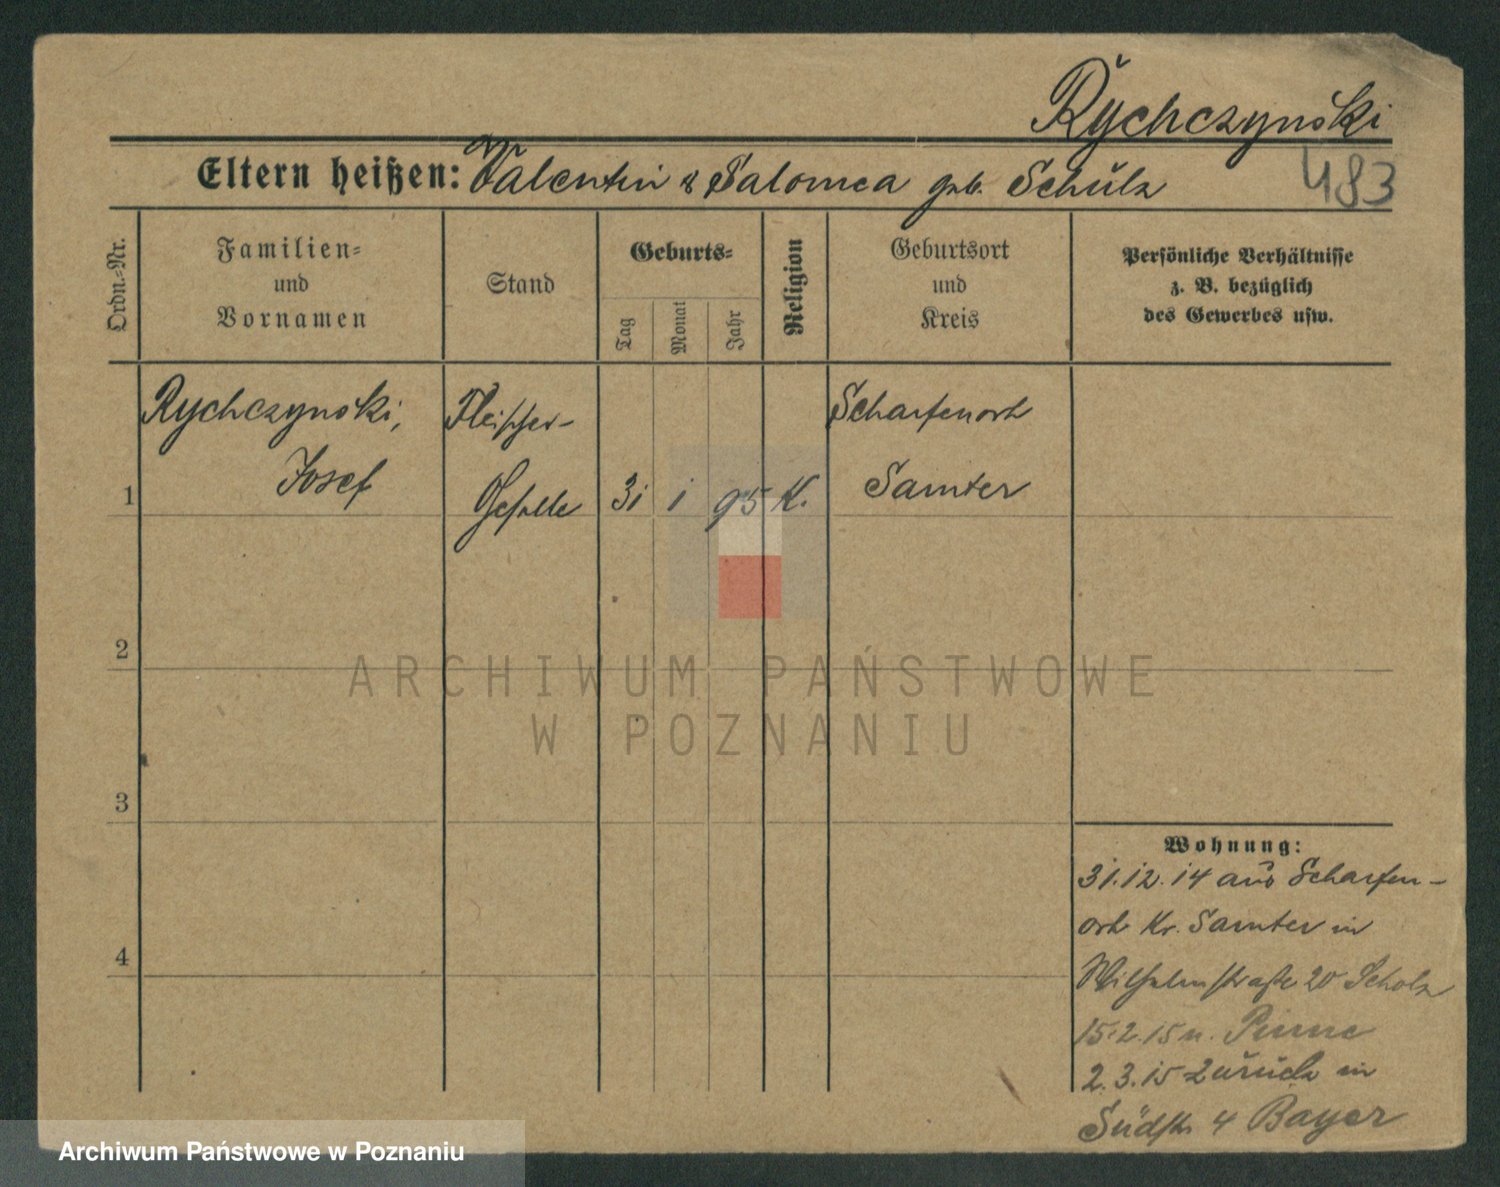 Rychczynski
Eltern heißen: Valentin & Salomea geb. Schulz
483
Ordn.-Nr.
Familien-
und
Vornamen
Stand
Geburts-
Tag
Monat
Jahr
Religion
Geburtsort
und
Kreis
Persönliche Verhältnisse
z. B. bezüglich
des Gewerbes usw.
Rychczynski,
Josef
Fleischer-
Geselle
Scharfenort
Samter
1
31
1
95
K.
2
ARCHIWUM PAŃSTWOWE
W POZNANIU
3
Wohnung:
31.12.14 aus Scharfen-
ort Kr. Samter in
Wilhelmstraße 20 Scholz
15.2.15 n. Pinne
2.3.15 zurück in
Südstr. 4 Bayer
4
Archiwum Państwowe w Poznaniu